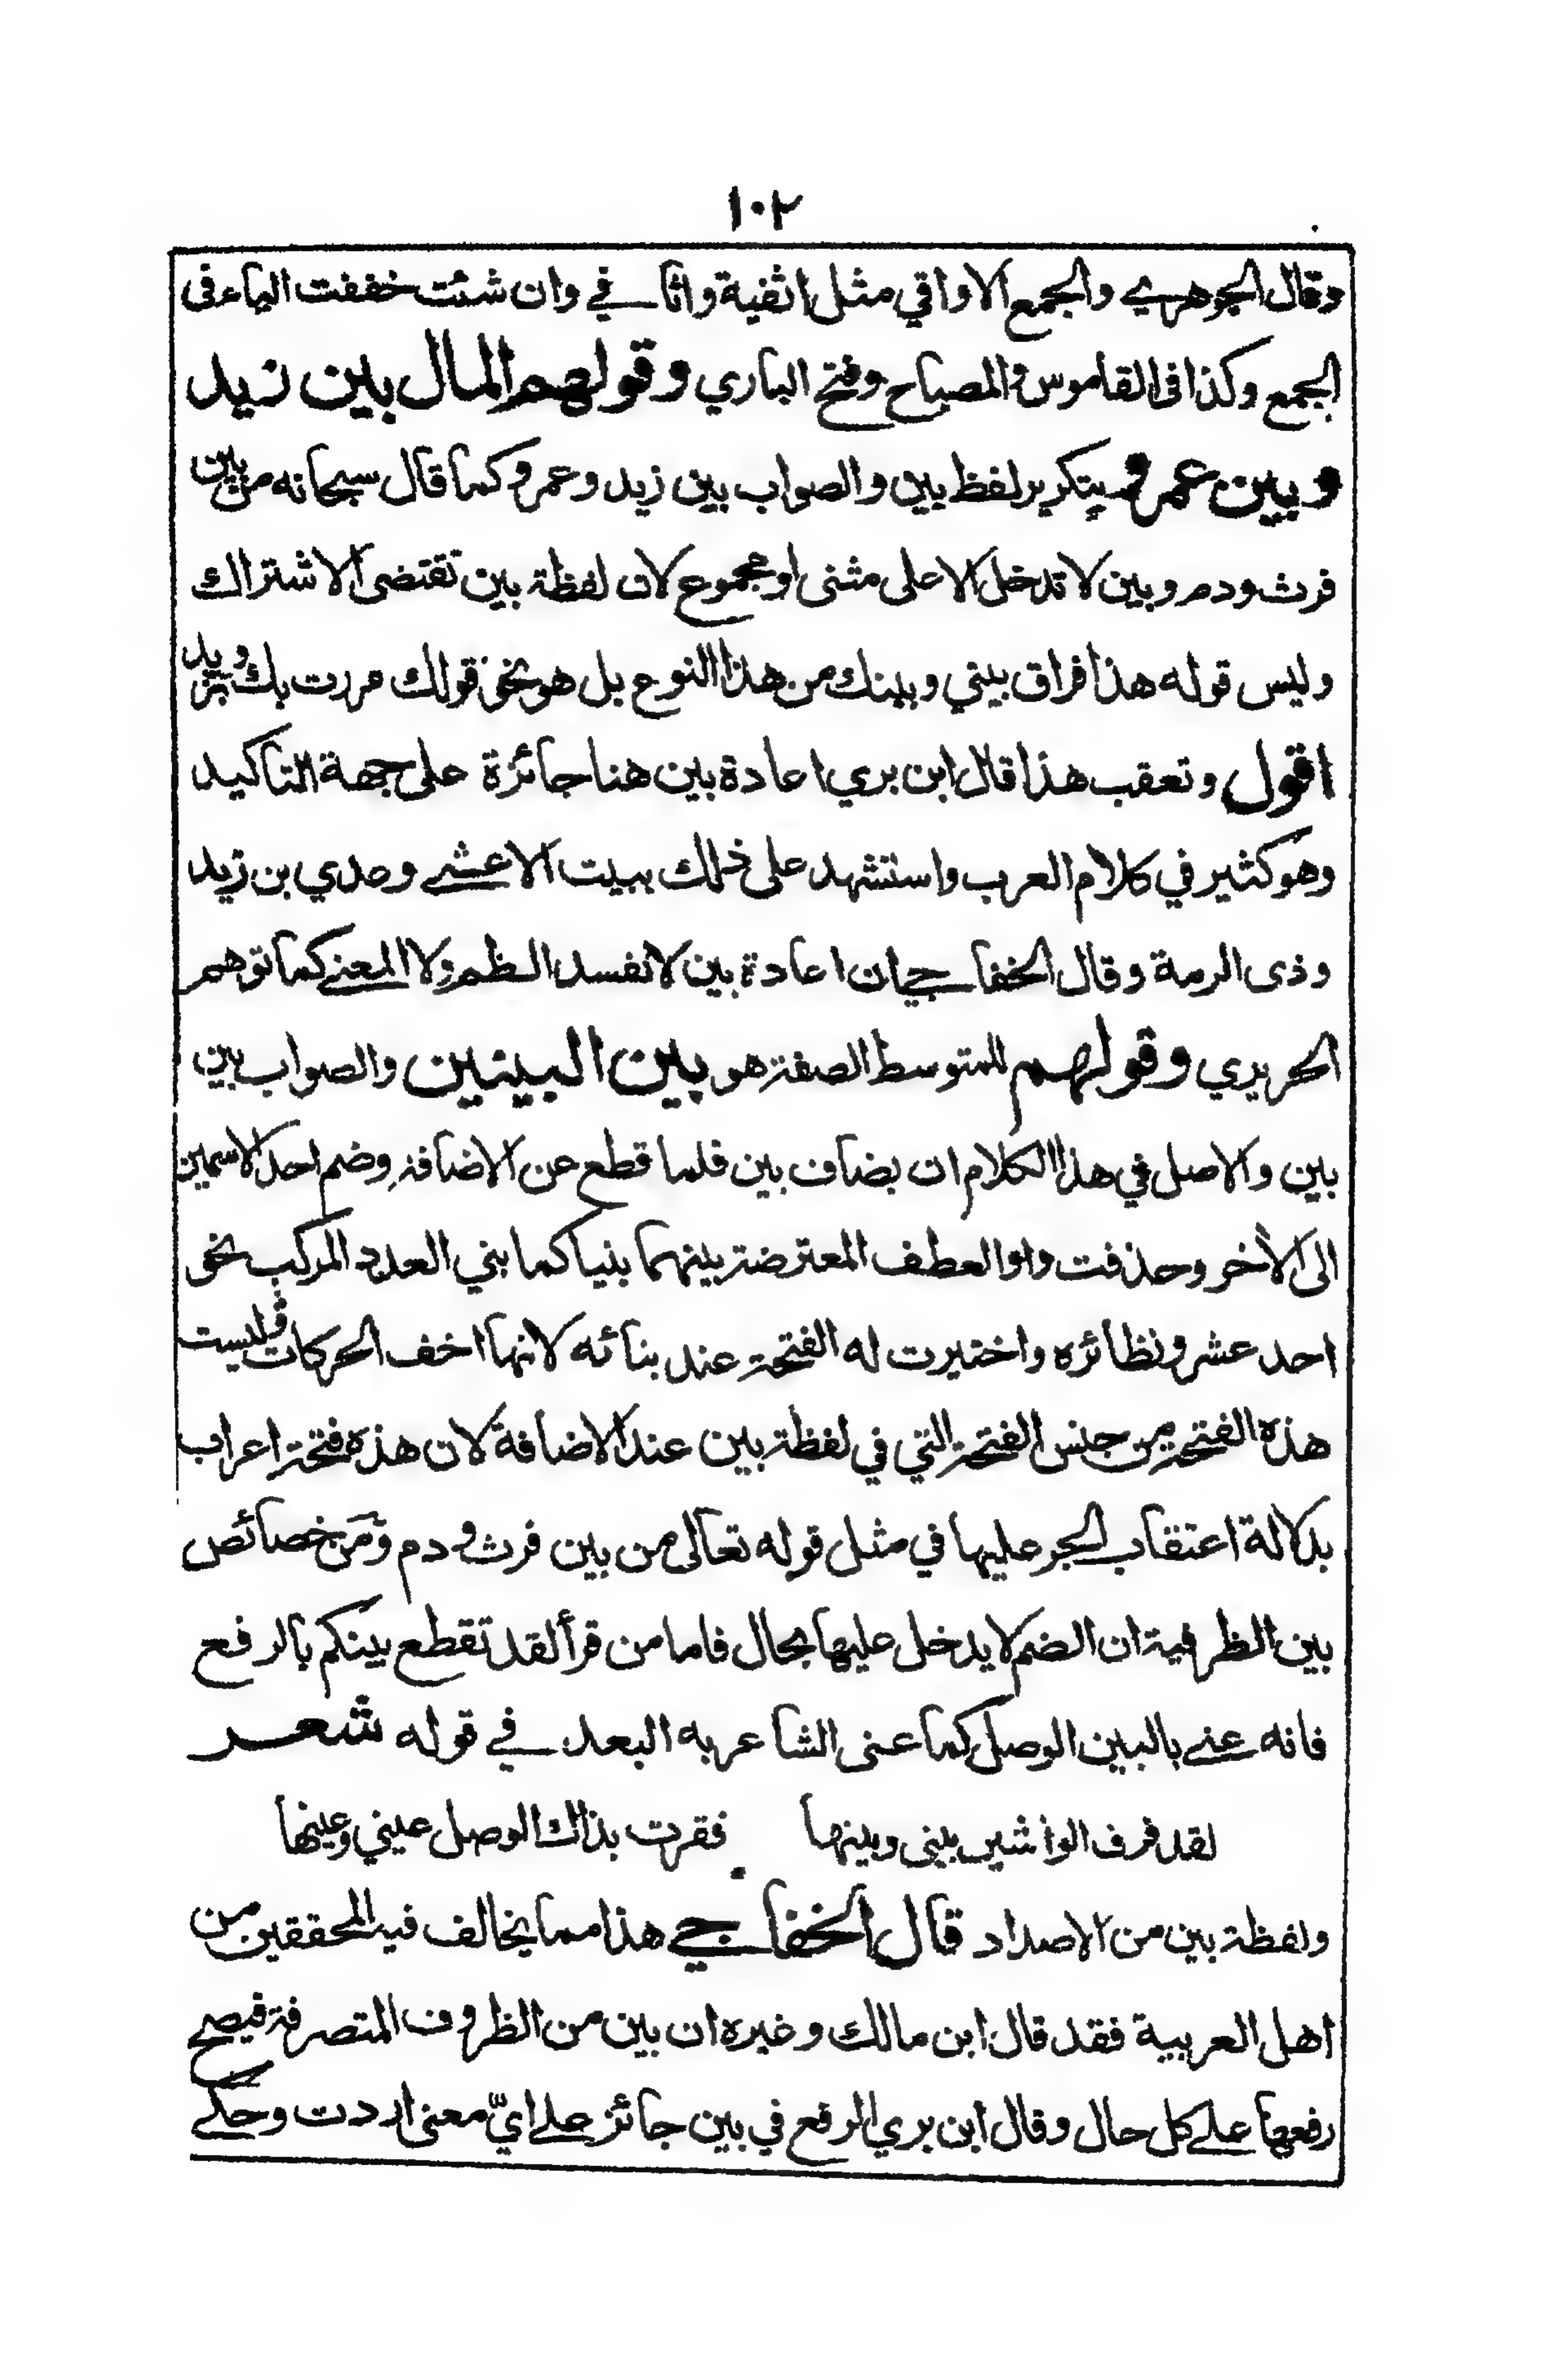 ١٠٢
وقال الجوهري والجمع الاواقي مثل اثفية واثافي وان شئت خففت الياء فى
الجمع وكذا فى القاموس والمصباح وفتح الباري وقولهم المال بين زيد
وبين عمرو بتكرير لفظ بين والصواب بين زيد وعمرو كما قال سبحانه من بين
فرث ودم وبين لا تدخل الا على مثنى او مجموع لان لفظة بين تقتضى الاشتراك
وليس قوله هذا فراق بيني وبينك من هذا النوع بل هو نحو قولك مررت بك وبزيد
اقول وتعقب هذا قال ابن بري اعادة بين هنا جائزة على جهة التاكيد
وهو كثير في كلام العرب واستشهد على ذلك ببيت الاعشى وعدي بن زيد
وذى الرمة وقال الخفاجي ان اعادة بين لا تفسد النظم ولا المعنى كما توهم
الحريري وقولهم للمتوسط الصفة هو بين البينين والصواب بين
بين والاصل في هذا الكلام ان يضاف بين فلما قطع عن الاضافة وضم احد الاسمين
الى الأخر وحذفت واو العطف المعترضة بينهما بنيا كما بني العدد المركب نحو
احد عشر ونظائره واختيرت له الفتحة عند بنائه لانها اخف الحركات وليست
هذه الفتحة من جنس الفتحة التي في لفظة بين عند الاضافة لان هذه فتحة اعراب
بدلالة اعتقاب الجر عليها في مثل قوله تعالى من بين فرث ودم ومن خصائص
بين الظرفية ان الضم لا يدخل عليها بحال فاما من قرأ لقد تقطع بينكم بالرفع
فانه عنى بالبين الوصل كما عنى الشاعر به البعد في قوله شعر
لقد فرق الواشين بينى وبينها فقرت بذاك الوصل عيني وعينها
ولفظة بين من الاضداد قال الخفاجي هذا مما يخالف فيه المحققين من
اهل العربية فقد قال ابن مالك وغيره ان بين من الظروف المتصرفة فيصح
رفعها على كل حال وقال ابن بري الرفع في بين جائز على ايّ معنى اردت وحكى